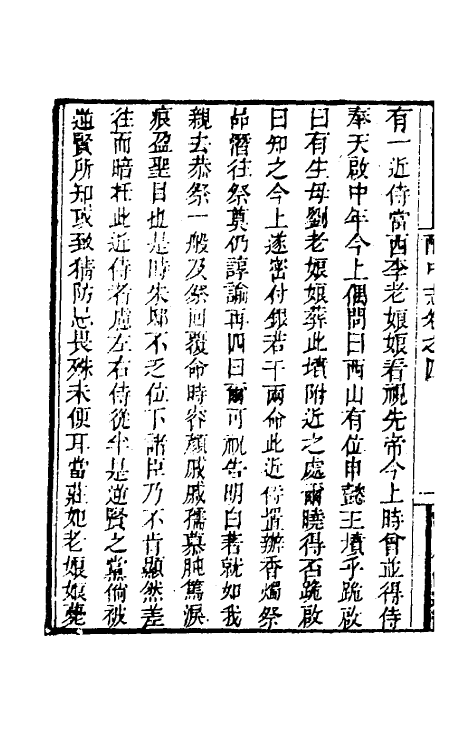 有一近侍當西李老娘娘看視先帝今上時曾並得侍
奉天啟中年今上偶問曰西山有位申懿王墳乎跪啟
曰有生母劉老娘娘葬此墳附近之處爾曉得否跪啟
曰知之今上遂密付銀若干兩命此近侍置辦香燭祭
品潛往祭奠仍諄諭再四曰爾可祝告明白著就如我
親去恭祭一般及祭回覆命時容顏戚戚孺慕肫篤淚
痕盈聖目也是時朱邸不乏位下諸臣乃不肯顯然差
往而暗枉此近侍者慮左右侍從半是逆賢之黨倘被
逆賢所知或致猜防忌畏殊未便耳當莊妃老娘娘薨
酌中志卷之四